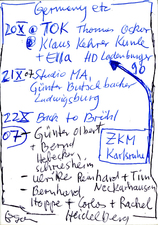 Germany etc
20X TOK Thomas Ocker
Klaus Kehrer Kunle
+ Ella HD Ladenburger
96
21X Studio MA,
Günter Butschbacher
Ludwigsburg
22X Back to Brühl
07 Günter Olbert
+ Bernd
Hefecker
Schriesheim
ZKM
Karlsruhe
Ulrike Reinhard + Tim
Neckarhausen
Bernhard
Hoppe + Carlos + Rachel
Heidelberg